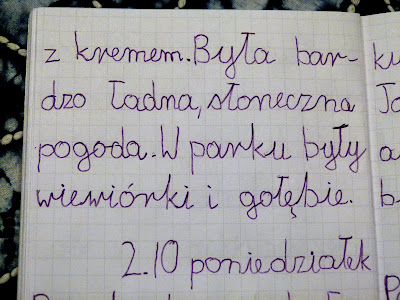 z kremem. Była bar-
dzo ładna, słoneczna
pogoda. W parku były
wiewiórki i gołębie.
2.10 poniedziałek